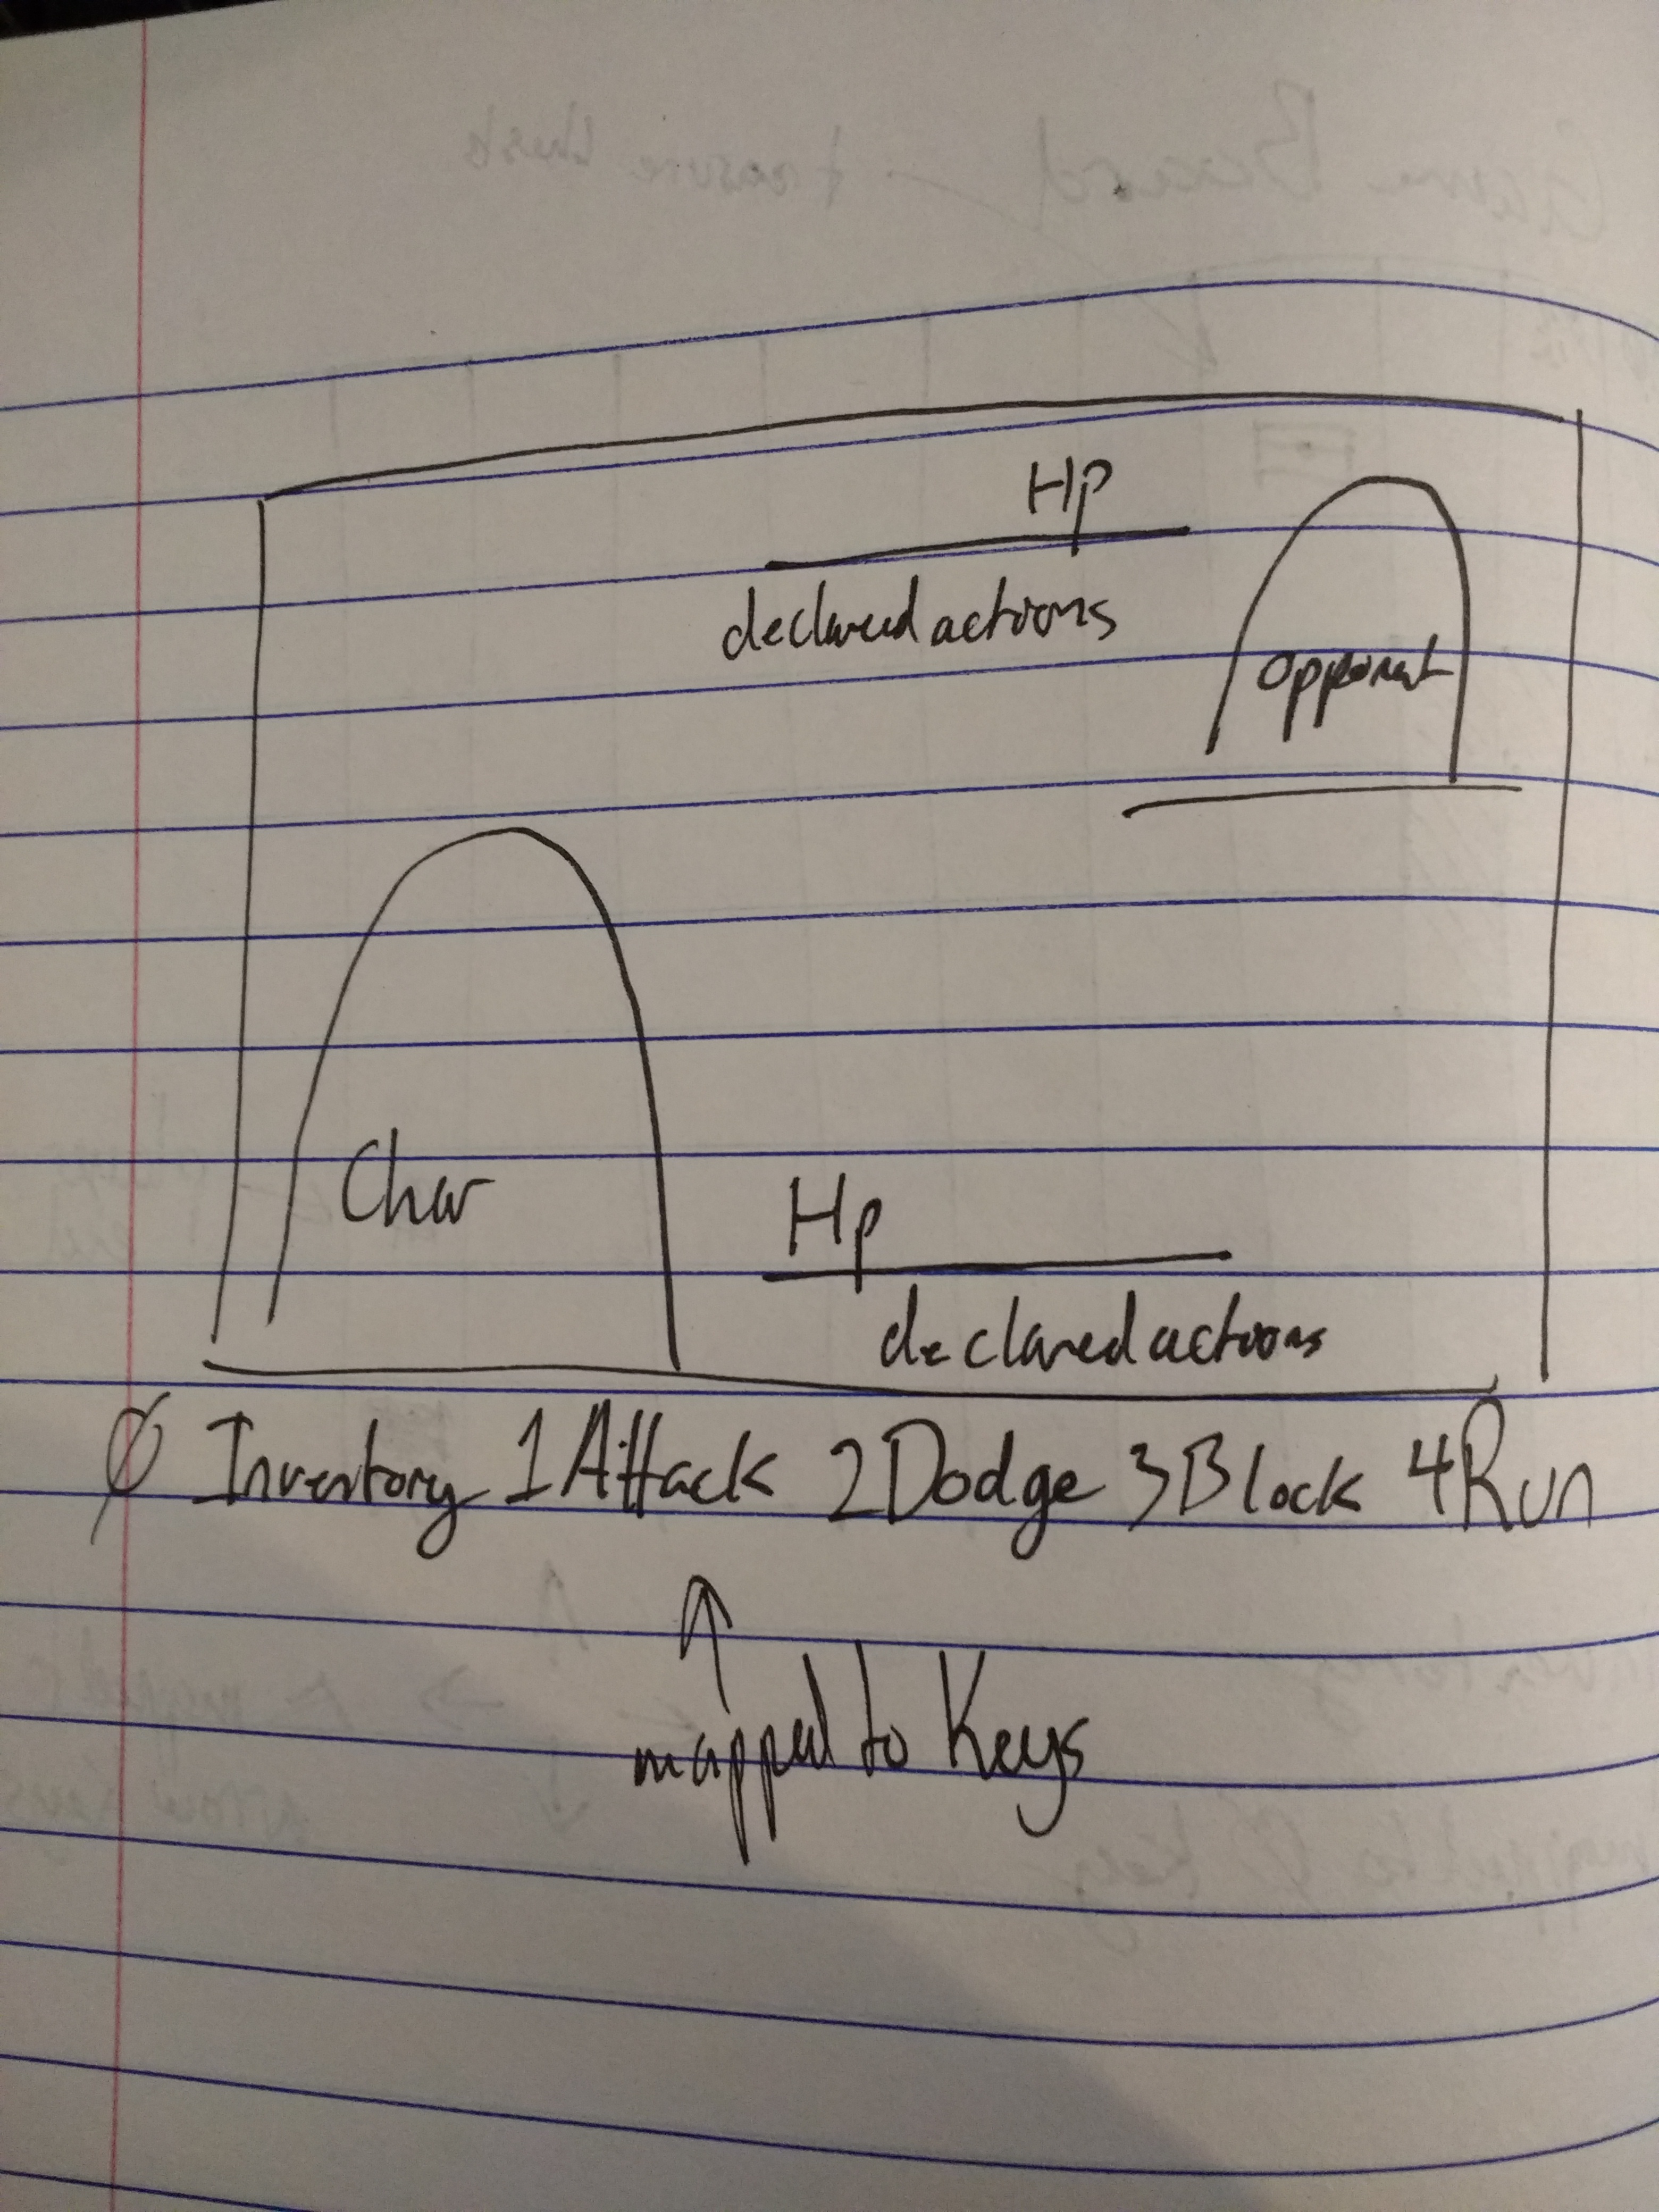 Hp
declared actions
opponent
Char
Hp
declared actions
0 Inventory 1 Attack 2 Dodge 3 Block 4 Run
mapped to Keys